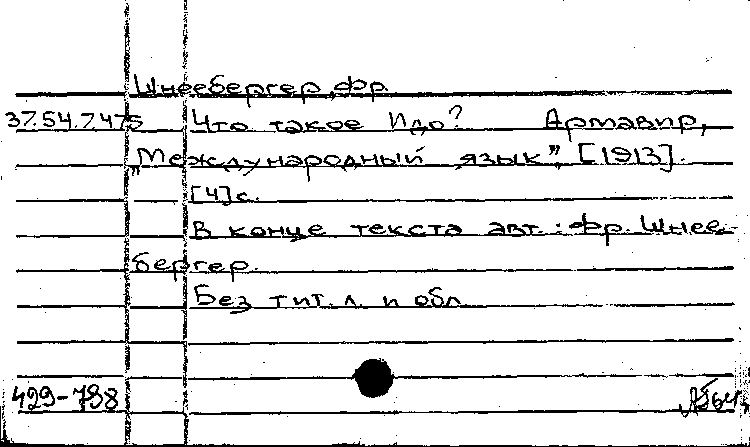 Шнеебергер, Фр.
37.54.7.475 Что такое Идо? Армавир,
„Международный язык”, [1913].
[4]с.
В конце текста авт.: Фр. Шнее-
бергер.
Без тит. л. и обл.
429-798